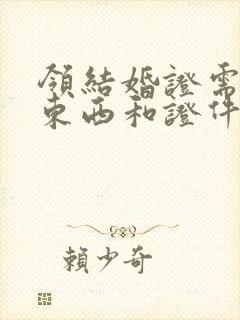 領結婚證需
東西和證件
賴少奇